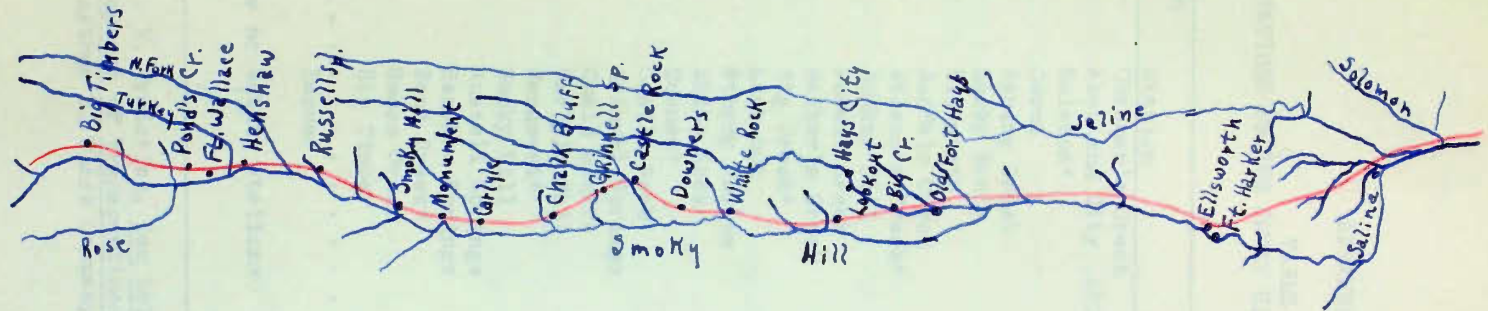 Big Timbers
N. Fork
Turkey
Pond's Cr.
Ft. Wallace
Henshaw
Russell Sp.
Smoky Hill
Monument
Carlyle
Chalk Bluff
Grinnell Sp.
Castle Rock
Downer's
White Rock
Hays City
Lookout
Big Cr.
Old Fort Hays
Saline
Ellsworth
Ft. Harker
Solomon
Salina
Rose
Smoky
Hill